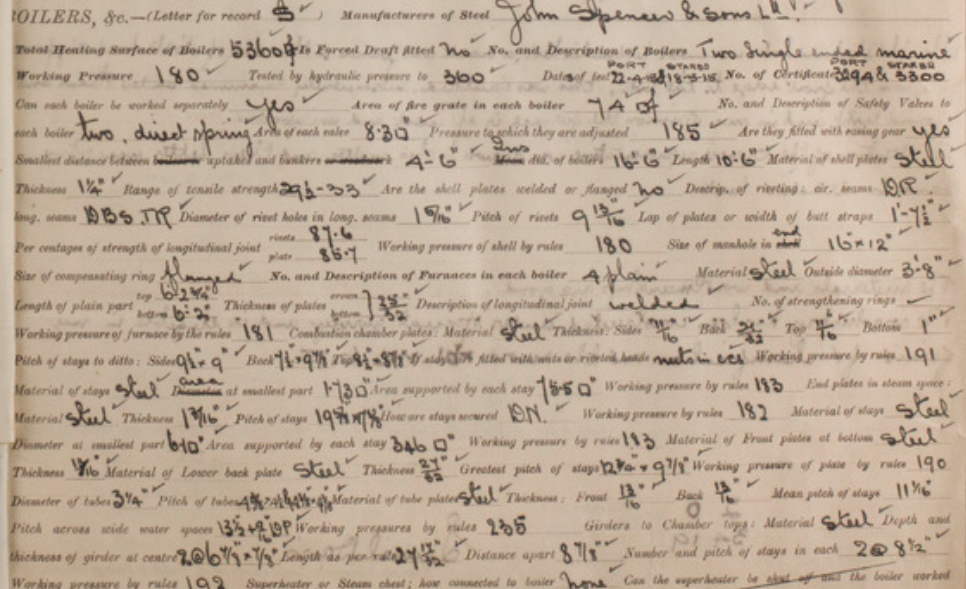 BOILERS, &c.—(Letter for record S) Manufacturers of Steel John Spencer & Sons Ld.
Total Heating Surface of Boilers 5360 Is Forced Draft fitted No No. and Description of Boilers Two Single ended marine
Working Pressure 180 Tested by hydraulic pressure to 360 Date of test PORT STARBD No. of Certificate PORT 3294 & STARBD 3300
Can each boiler be worked separately yes Area of fire grate in each boiler 74 No. and Description of Safety Valves to
each boiler two, direct spring Area of each valve 8.30" Pressure to which they are adjusted 185 Are they fitted with easing gear yes
Smallest distance between uptakes and bunkers 4'-6" Ins dia. of boilers 16'-6" Length 10'-6" Material of shell plates Steel
Thickness 1¼" Range of tensile strength 29½-33 Are the shell plates welded or flanged No Descrip. of riveting: cir. seams D.R.
long. seams DBS.TR Diameter of rivet holes in long. seams 1 5/16" Pitch of rivets 9 13/16" Lap of plates or width of butt straps 1'-7½"
Per centages of strength of longitudinal joint rivets 87.6 plate 86.7 Working pressure of shell by rules 180 Size of manhole in end 16"×12"
Size of compensating ring flanged No. and Description of Furnaces in each boiler 4 plain Material Steel Outside diameter 3'-8"
Length of plain part top 6'-2¾" bottom 6'-2" Thickness of plates crown bottom 25/32 Description of longitudinal joint welded No. of strengthening rings
Working pressure of furnace by the rules 181 Combustion chamber plates: Material Steel Thickness: Sides 11/16 Back 21/32 Top 11/16 Bottom 1"
Pitch of stays to ditto: Sides 9½×9" Back Top If stays are fitted with nuts or riveted heads nuts in ccs Working pressure by rules 191
Material of stays Steel area at smallest part 1.73 Area supported by each stay Working pressure by rules 183 End plates in steam space:
Material Steel Thickness 1 3/16" Pitch of stays How are stays secured D.N. Working pressure by rules 182 Material of stays Steel
Diameter at smallest part Area supported by each stay 346 Working pressure by rules 183 Material of Front plates at bottom Steel
Thickness Material of Lower back plate Steel Thickness 27/32 Greatest pitch of stays 12¼"×9⅞" Working pressure of plate by rules 190
Diameter of tubes 3¼" Pitch of tubes Material of tube plates Steel Thickness: Front 13/16 Back 13/16" Mean pitch of stays 11 1/16"
Pitch across wide water spaces 13½ Working pressures by rules 235 Girders to Chamber tops: Material Steel Depth and
thickness of girder at centre 2@6⅞×⅞" Length as per rule Distance apart 8⅞" Number and pitch of stays in each 2@8½"
Working pressure by rules 192 Superheater or Steam chest; how connected to boiler none Can the superheater be shut off and the boiler worked